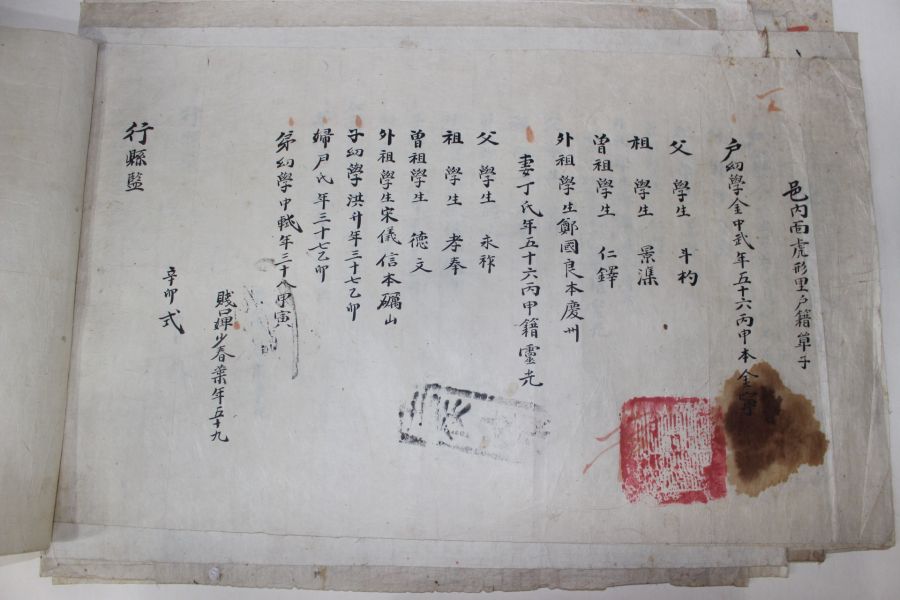 邑内面虎形里戶籍單子
戶幼學金中武年五十六丙申本金寧
父 學生 斗杓
祖 學生 景渠
曽祖學生 仁鐸
外祖學生鄭國良本慶州
妻丁氏年五十六丙申籍靈光
父 學生 永祚
祖 學生 孝奉
曽祖學生 德文
外祖學生宋儀信本礪山
子幼學洪升年三十七乙卯
婦尹氏年三十七乙卯
弟幼學中軾年三十八甲寅
賤口婢少春葉年五十九
辛卯式
行縣監